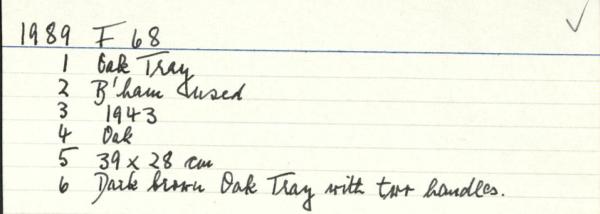 1989 F 68
1 Oak Tray
2 B'ham used
3 1943
4 Oak
5 39 x 28 cm
6 Dark brown Oak Tray with two handles.